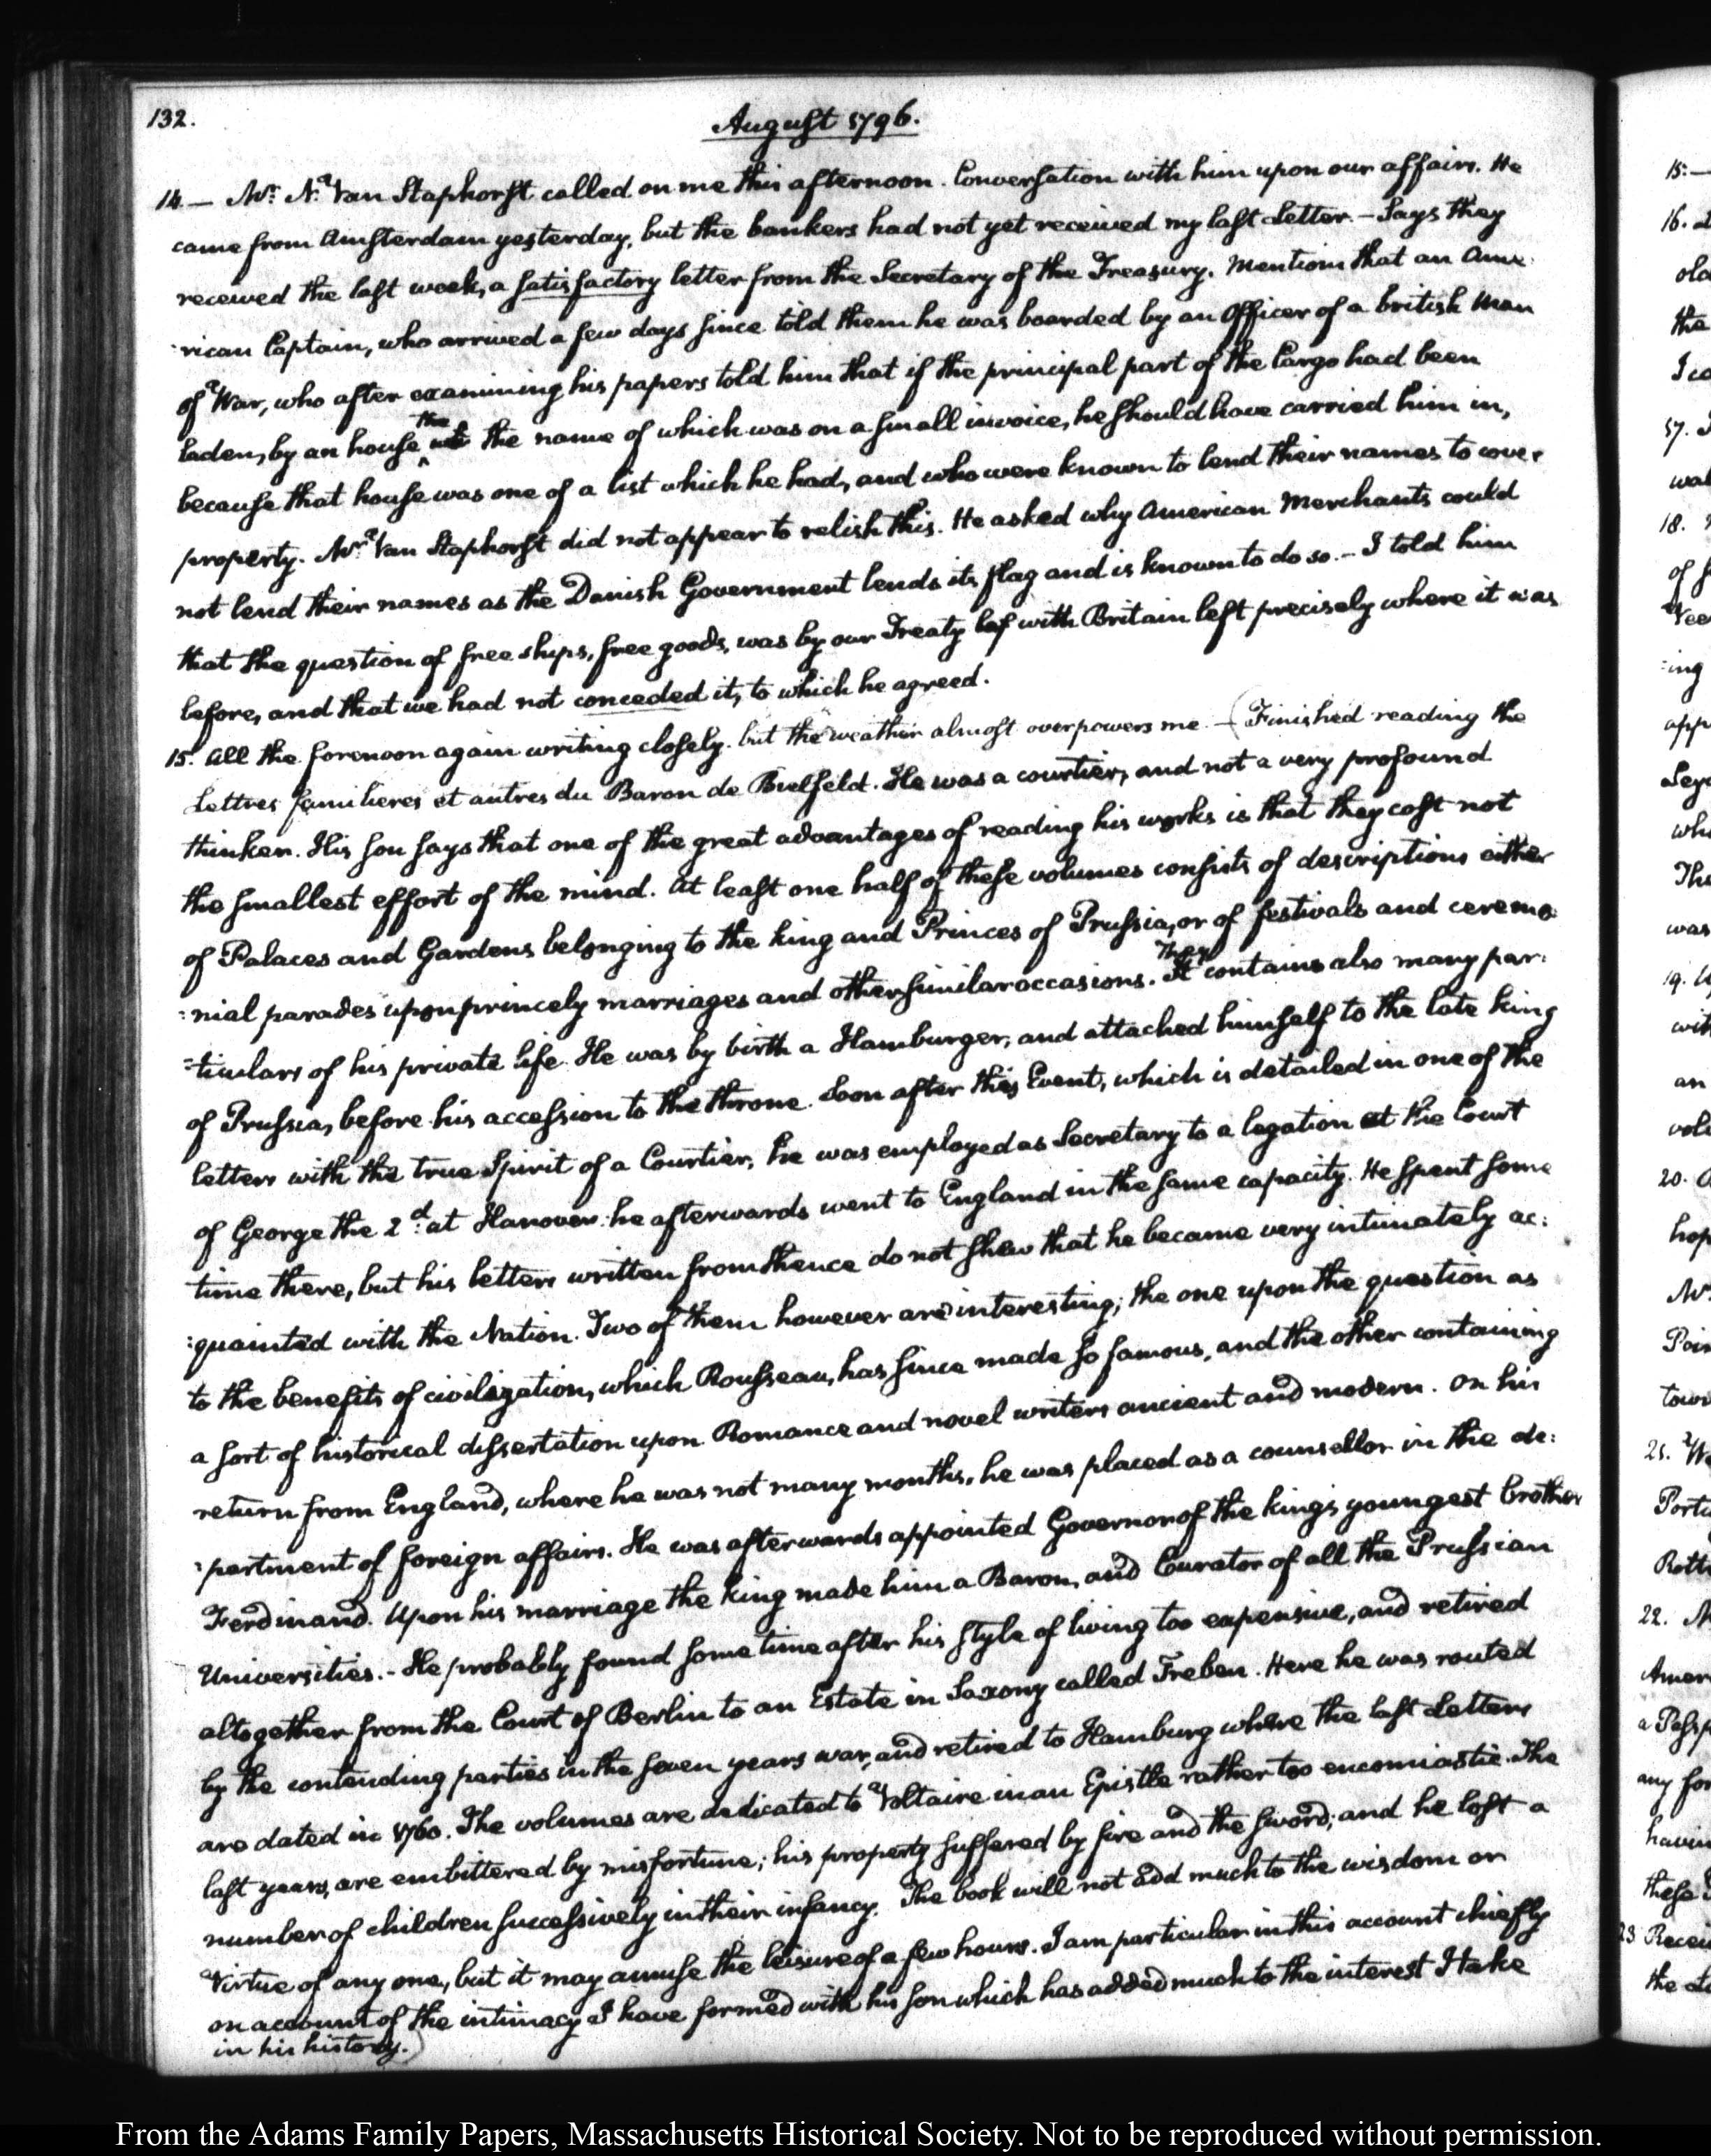 132.
August 1796.
14 — Mr. N. Van Staphorst called on me this afternoon. Conversation with him upon our affairs. He
came from Amsterdam yesterday, but the bankers had not yet received my last Letter. — Says they
received the last week, a satisfactory letter from the Secretary of the Treasury. Mentions that an Ame-
rican Captain, who arrived a few days since told them he was boarded by an Officer of a british Man
of War, who after examining his papers told him that if the principal part of the Cargo had been
laden, by an house the name of which was on a small invoice, he should have carried him in,
because that house was one of a list which he had, and who were known to lend their names to cover
property. Mr. Van Staphorst did not appear to relish this. He asked why American Merchants could
not lend their names as the Danish Government lends its flag and is known to do so. — I told him
that the question of free ships, free goods, was by our Treaty with Britain left precisely where it was
before, and that we had not conceded it, to which he agreed.
15. All the forenoon again writing closely. but the weather almost overpowers me — (Finished reading the
Lettres familieres et autres du Baron de Bielfeld. He was a courtier, and not a very profound
thinker. His son says that one of the great advantages of reading his works is that they cost not
the smallest effort of the mind. At least one half of these volumes consists of descriptions either
of Palaces and Gardens belonging to the king and Princes of Prussia, or of festivals and ceremo
:nial parades upon princely marriages and other similar occasions. They contain also many par:
:ticulars of his private life. He was by birth a Hamburger, and attached himself to the late king
of Prussia, before his accession to the throne. Soon after this Event, which is detailed in one of the
letters with the true Spirit of a Courtier, he was employed as Secretary to a legation at the Court
of George the 2d. at Hanover. he afterwards went to England in the same capacity. He spent some
time there, but his letters written from thence do not shew that he became very intimately ac:
:quainted with the Nation. Two of them however are interesting; the one upon the question as
to the benefits of civilization, which Rousseau, has since made so famous, and the other containing
a sort of historical dissertation upon Romance and novel writers ancient and modern. On his
return from England, where he was not many months, he was placed as a counsellor in the de:
:partment of foreign affairs. He was afterwards appointed Governor of the king's youngest brother
Ferdinand. Upon his marriage the king made him a Baron, and Curator of all the Prussian
Universities. — He probably found some time after his style of living too expensive, and retired
altogether from the Court of Berlin to an Estate in Saxony called Treben. Here he was routed
by the contending parties in the seven years war, and retired to Hamburg where the last Letters
are dated in 1760. The volumes are dedicated to Voltaire in an Epistle rather too encomiastic. The
last years, are embittered by misfortune; his property suffered by fire and the sword, and he lost a
number of children successively in their infancy. The book will not add much to the wisdom or
Virtue of any one, but it may amuse the leisure of a few hours. I am particular in this account chiefly
on account of the intimacy I have formed with his son which has added much to the interest I take
in his history.)
15: —
16.
old
the
17.
18.
of
:ing
was
19.
with
an
20.
Mr.
21.
22.
Amer
any for
havin
these
23 Recei
the
From the Adams Family Papers, Massachusetts Historical Society. Not to be reproduced without permission.